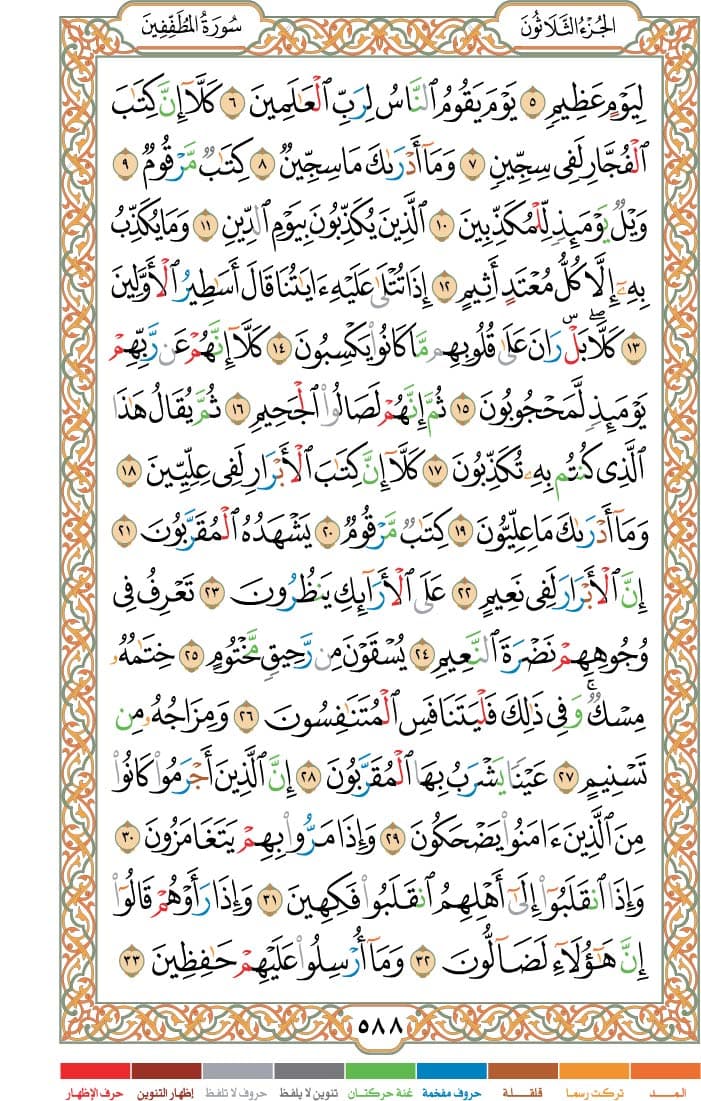 الجُزْءُ الثَّلَاثُونَ
سُورَةُ المُطَفِّفِينَ
لِيَوْمٍ عَظِيمٍ ٥ يَوْمَ يَقُومُ ٱلنَّاسُ لِرَبِّ ٱلْعَٰلَمِينَ ٦ كَلَّآ إِنَّ كِتَٰبَ
ٱلْفُجَّارِ لَفِى سِجِّينٍ ٧ وَمَآ أَدْرَىٰكَ مَا سِجِّينٌ ٨ كِتَٰبٌ مَّرْقُومٌ ٩
وَيْلٌ يَوْمَئِذٍ لِّلْمُكَذِّبِينَ ١٠ ٱلَّذِينَ يُكَذِّبُونَ بِيَوْمِ ٱلدِّينِ ١١ وَمَا يُكَذِّبُ
بِهِۦٓ إِلَّا كُلُّ مُعْتَدٍ أَثِيمٍ ١٢ إِذَا تُتْلَىٰ عَلَيْهِ ءَايَٰتُنَا قَالَ أَسَٰطِيرُ ٱلْأَوَّلِينَ
١٣ كَلَّا ۖ بَلْ ۜ رَانَ عَلَىٰ قُلُوبِهِم مَّا كَانُوا۟ يَكْسِبُونَ ١٤ كَلَّآ إِنَّهُمْ عَن رَّبِّهِمْ
يَوْمَئِذٍ لَّمَحْجُوبُونَ ١٥ ثُمَّ إِنَّهُمْ لَصَالُوا۟ ٱلْجَحِيمِ ١٦ ثُمَّ يُقَالُ هَٰذَا
ٱلَّذِى كُنتُم بِهِۦ تُكَذِّبُونَ ١٧ كَلَّآ إِنَّ كِتَٰبَ ٱلْأَبْرَارِ لَفِى عِلِّيِّينَ ١٨
وَمَآ أَدْرَىٰكَ مَا عِلِّيُّونَ ١٩ كِتَٰبٌ مَّرْقُومٌ ٢٠ يَشْهَدُهُ ٱلْمُقَرَّبُونَ ٢١
إِنَّ ٱلْأَبْرَارَ لَفِى نَعِيمٍ ٢٢ عَلَى ٱلْأَرَآئِكِ يَنظُرُونَ ٢٣ تَعْرِفُ فِى
وُجُوهِهِمْ نَضْرَةَ ٱلنَّعِيمِ ٢٤ يُسْقَوْنَ مِن رَّحِيقٍ مَّخْتُومٍ ٢٥ خِتَٰمُهُۥ
مِسْكٌ ۚ وَفِى ذَٰلِكَ فَلْيَتَنَافَسِ ٱلْمُتَنَٰفِسُونَ ٢٦ وَمِزَاجُهُۥ مِن
تَسْنِيمٍ ٢٧ عَيْنًا يَشْرَبُ بِهَا ٱلْمُقَرَّبُونَ ٢٨ إِنَّ ٱلَّذِينَ أَجْرَمُوا۟ كَانُوا۟
مِنَ ٱلَّذِينَ ءَامَنُوا۟ يَضْحَكُونَ ٢٩ وَإِذَا مَرُّوا۟ بِهِمْ يَتَغَامَزُونَ ٣٠
وَإِذَا ٱنقَلَبُوٓا۟ إِلَىٰٓ أَهْلِهِمُ ٱنقَلَبُوا۟ فَكِهِينَ ٣١ وَإِذَا رَأَوْهُمْ قَالُوٓا۟
إِنَّ هَٰٓؤُلَآءِ لَضَآلُّونَ ٣٢ وَمَآ أُرْسِلُوا۟ عَلَيْهِمْ حَٰفِظِينَ ٣٣
٥٨٨
المـــد تركت رسما قلقـلة حروف مفخمة غنة حركتان تنوين لا يلفظ حروف لا تلفظ إظهار التنوين حرف الإظهار